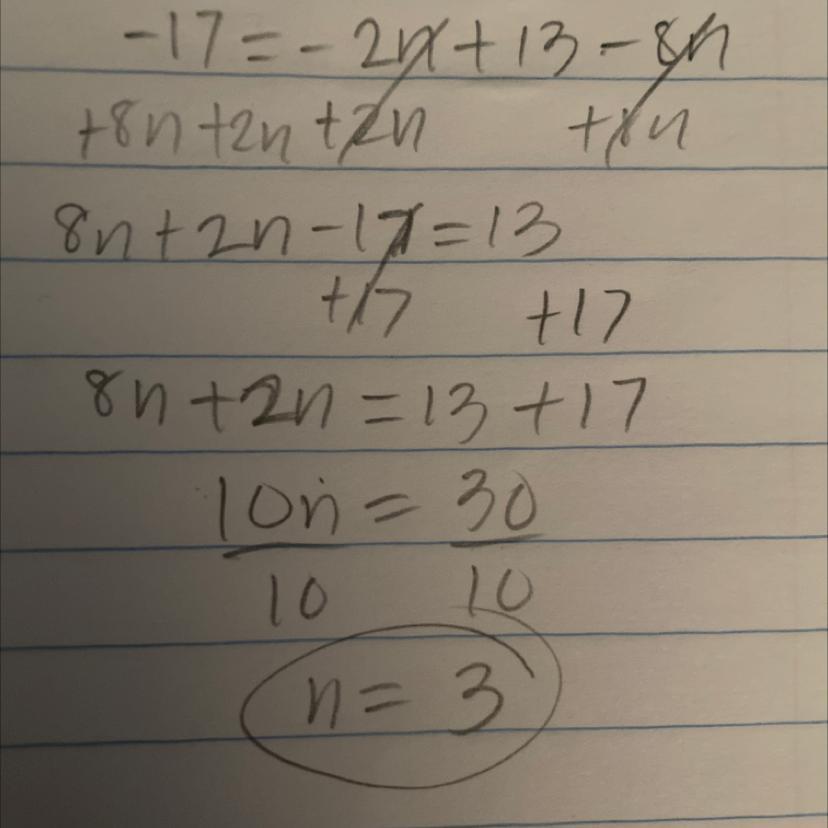 -17 = - 2n + 13 - 8n
+8n +2n +2n +8n
8n + 2n - 17 = 13
+17 +17
8n + 2n = 13 + 17
10n = 30
10 10
n = 3